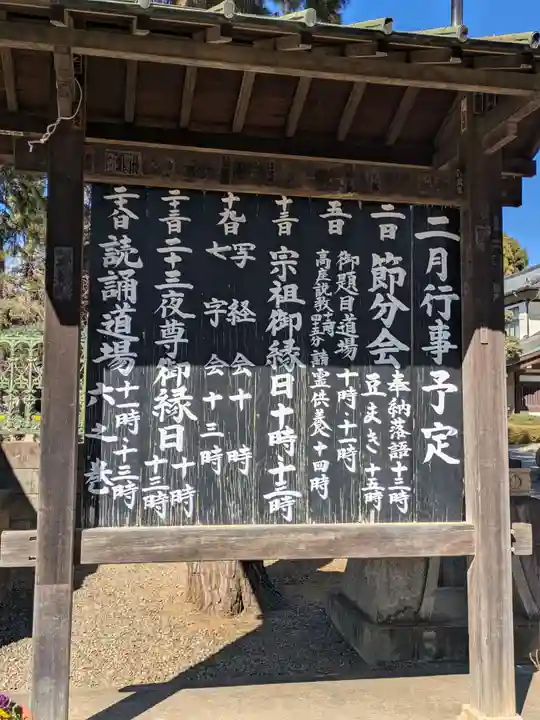 二月行事予定
二日
節分会
奉納落語十三時
豆まき十五時
五日
御題目道場 十時・十一時
高座説教十一時四五分 諸霊供養十四時
十三日
宗祖御縁日十時・十三時
十九日
写経会十時
七字会十三時
二十三日
二十三夜尊御縁日
十時
十三時
二十八日
読誦道場十一時・十三時
六之巻